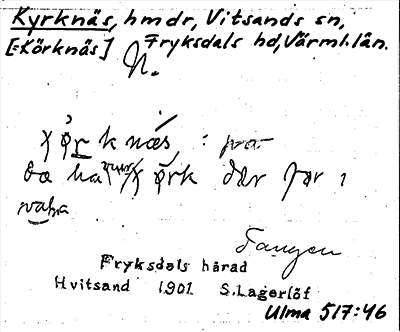 Kyrknäs, hmdr, Vitsands sn,
[=Körknäs] Fryksdals hd, Värml. län.
N.
χørknæs : på
da ha χørk dær for i
Tangen
Fryksdals härad
Hvitsand 1901 S. Lagerlöf
Ulma 517:46